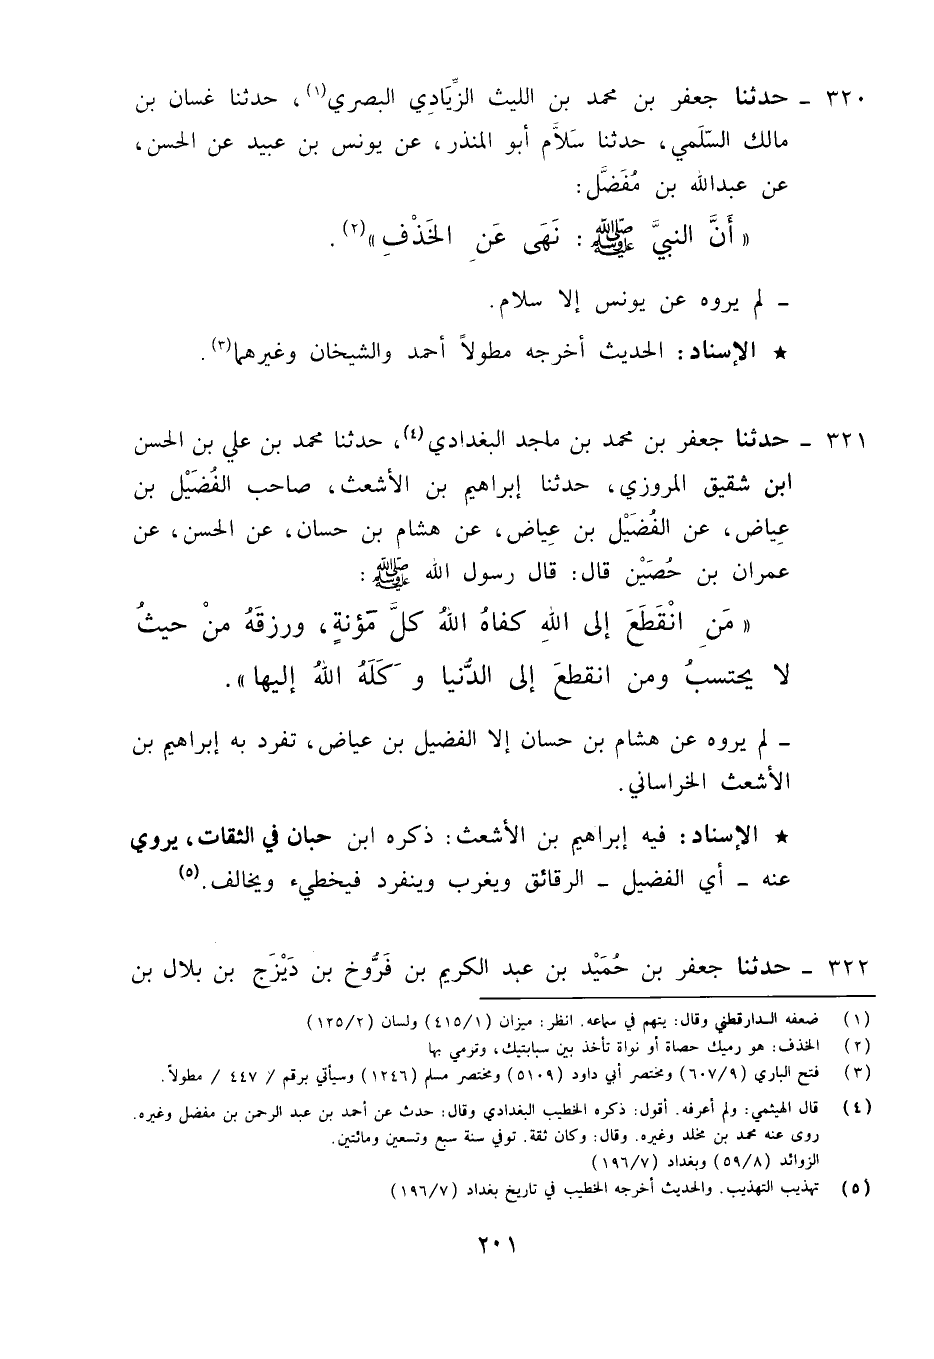 ٣٢٠ - حدثنا جعفر بن محمد بن الليث الزِّيَادِي البصري(١)، حدثنا غسان بن
مالك السّلَمي، حدثنا سَلاَّم أبو المنذر، عن يونس بن عبيد عن الحسن،
عن عبدالله بن مُفَضَّل:
« أَنَّ النبيَّ ﷺ : نَهَى عَنِ الخَذْفِ »(٢).
- لم يروه عن يونس إلا سلام.
★ الإسناد: الحديث أخرجه مطولاً أحمد والشيخان وغيرهما(٣).
٣٢١ - حدثنا جعفر بن محمد بن ماجد البغدادي(٤)، حدثنا محمد بن علي بن الحسن
ابن شقيق المروزي، حدثنا إبراهيم بن الأشعث، صاحب الفُضَيْل بن
عِياض، عن الفُضَيْل بن عِياض، عن هشام بن حسان، عن الحسن، عن
عمران بن حُصَيْن قال: قال رسول الله ﷺ :
« مَنِ انْقَطَعَ إلى اللهِ كفاهُ اللهُ كلَّ مؤنةٍ، ورزقَهُ منْ حيثُ
لا يحتسبُ ومن انقطعَ إلى الدُّنيا و كَلَهُ اللهُ إليها ».
- لم يروه عن هشام بن حسان إلا الفضيل بن عياض، تفرد به إبراهيم بن
الأشعث الخراساني.
★ الإسناد: فيه إبراهيم بن الأشعث: ذكره ابن حبان في الثقات، يروي
عنه - أي الفضيل - الرقائق ويغرب وينفرد فيخطيء ويخالف.(٥)
٣٢٢ - حدثنا جعفر بن حُمَيْد بن عبد الكريم بن فَرُّوخ بن دَيْزَج بن بلال بن
(١) ضعفه الدارقطني وقال: يتهم في سماعه. انظر: ميزان (٤١٥/١) ولسان (١٢٥/٢)
(٢) الخذف: هو رميك حصاة أو نواة تأخذ بين سبابتيك، وترمي بها
(٣) فتح الباري (٦٠٧/٩) ومختصر أبي داود (٥١٠٩) ومختصر مسلم (١٢٤٦) وسيأتي برقم / ٤٤٧ / مطولاً.
(٤) قال الهيثمي: ولم أعرفه. أقول: ذكره الخطيب البغدادي وقال: حدث عن أحمد بن عبد الرحمن بن مفضل وغيره.
روى عنه محمد بن مخلد وغيره. وقال: وكان ثقة. توفي سنة سبع وتسعين ومائتين.
الزوائد (٥٩/٨) وبغداد (١٩٦/٧)
(٥) تهذيب التهذيب. والحديث أخرجه الخطيب في تاريخ بغداد (١٩٦/٧)
٢٠١